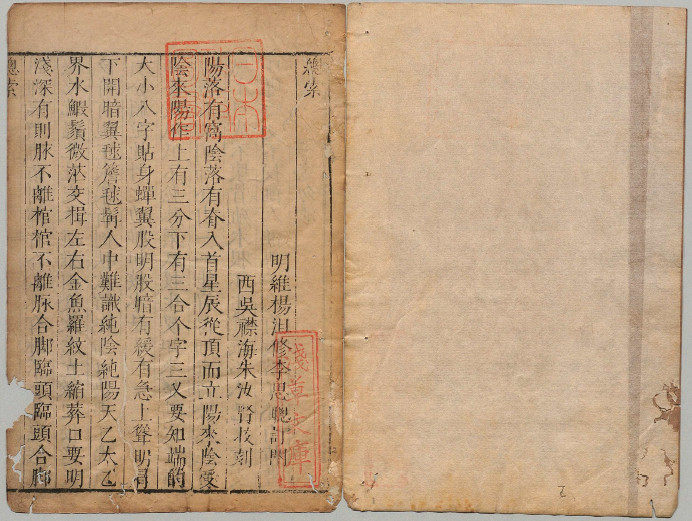 總索
明維楊沮修李思聰訂閱
西吳襟海朱汝賢校刻
陽落有窩陰落有脊入首星辰從頂而立陽來陰受
陰來陽作上有三分下有三合个字三叉要知端的
大小八字貼身蟬翼股明股暗有緩有急上聳明肩
下開暗翼毬簷毬髯人中難識純陰純陽天乙太乙
界水鰕鬚微茫交揖左右金魚羅紋土縮葬口要明
淺深有則脉不離棺棺不離脉合脚臨頭臨頭合脚
總索
淺草文庫